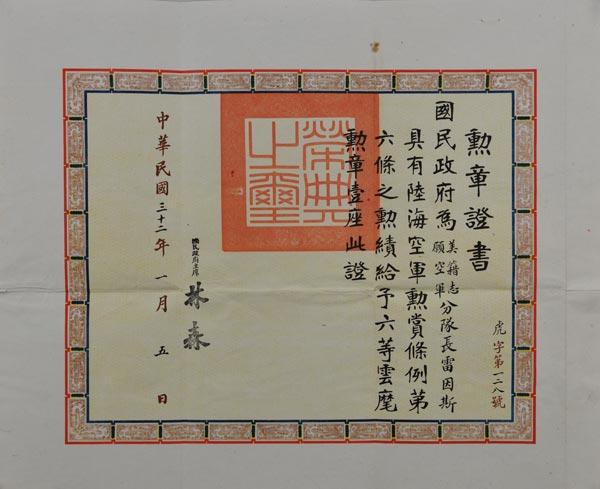 虎字第一二八號
勲章證書
國民政府為美籍志願空軍分隊長雷因斯
具有陸海空軍勲賞條例第
六條之勲績給予六等雲麾
勲章壹座此證
榮典之璽
國民政府主席
林森
中華民國三十二年一月五日